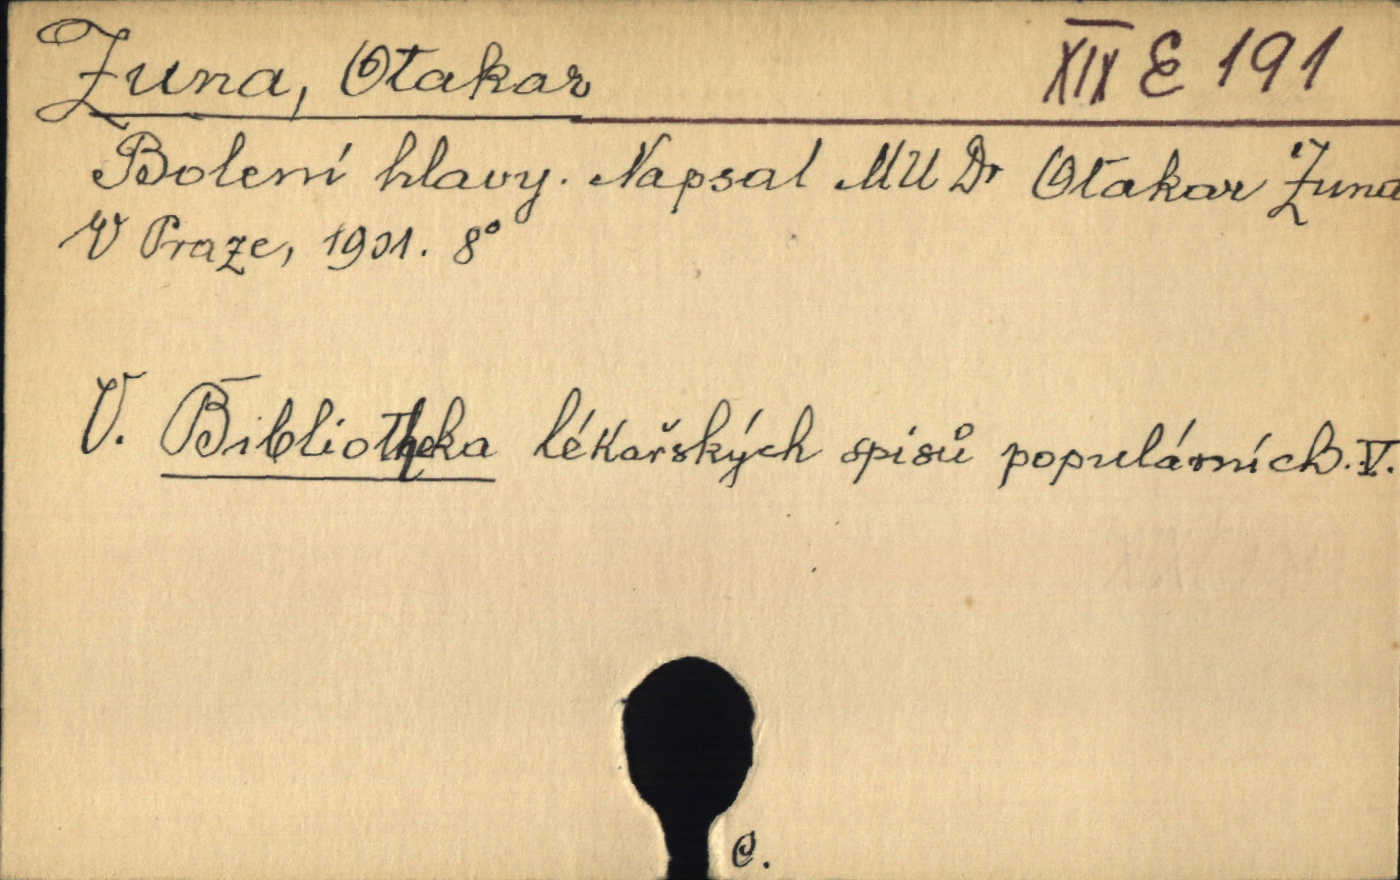 Zuna, Otakar XIX E 191
Bolení hlavy. Napsal MUDr Otakar Zuna
V Praze, 1901. 8°
V. Bibliotheka lékařských spisů populárních. V.
C.